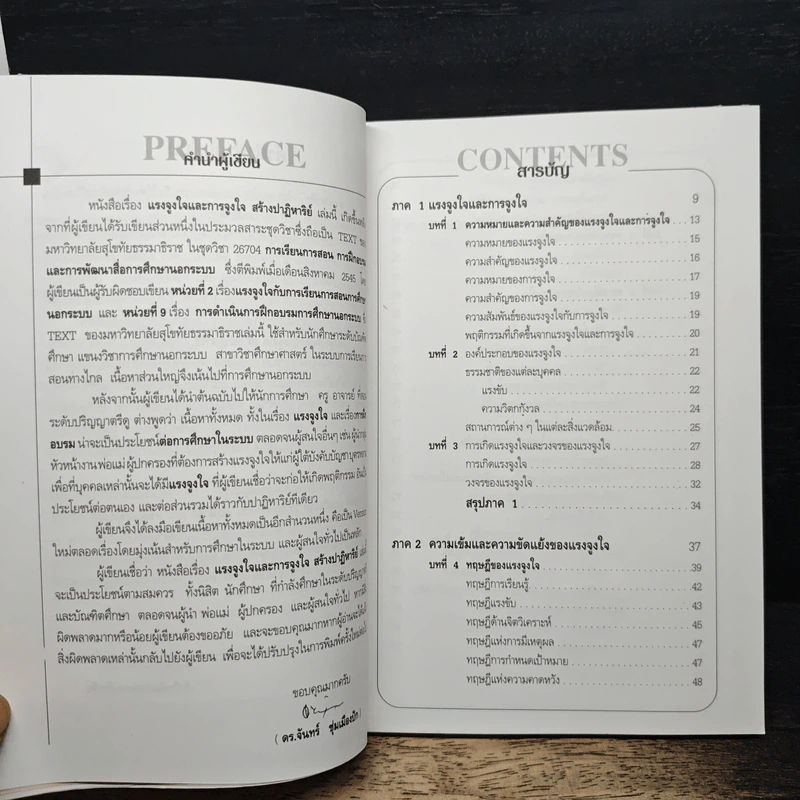 PREFACE
คำนำผู้เขียน
หนังสือเรื่อง แรงจูงใจและการจูงใจ สร้างปาฏิหาริย์ เล่มนี้ เกิดขึ้น
จากที่ผู้เขียนได้รับเขียนส่วนหนึ่งในประมวลสาระชุดวิชาซึ่งถือเป็น TEXT
มหาวิทยาลัยสุโขทัยธรรมาธิราช ในชุดวิชา 26704 การเรียนการสอน การฝึกอบรม
และการพัฒนาสื่อการศึกษานอกระบบ ซึ่งตีพิมพ์เมื่อเดือนสิงหาคม 2546
ผู้เขียนเป็นผู้รับผิดชอบเขียน หน่วยที่ 2 เรื่องแรงจูงใจกับการเรียนการสอนการศึกษา
นอกระบบ และ หน่วยที่ 9 เรื่อง การดำเนินการฝึกอบรมการศึกษานอกระบบ
TEXT ของมหาวิทยาลัยสุโขทัยธรรมาธิราชเล่มนี้ ใช้สำหรับนักศึกษาระดับบัณฑิต
ศึกษา แขนงวิชาการศึกษานอกระบบ สาขาวิชาศึกษาศาสตร์ ในระบบการเรียนการ
สอนทางไกล เนื้อหาส่วนใหญ่จึงเน้นไปที่การศึกษานอกระบบ
หลังจากนั้นผู้เขียนได้นำต้นฉบับไปให้นักการศึกษา ครู อาจารย์
ระดับปริญญาตรีดู ต่างพูดว่า เนื้อหาทั้งหมด ทั้งในเรื่อง แรงจูงใจ และเรื่องการฝึก
อบรม น่าจะเป็นประโยชน์ต่อการศึกษาในระบบ ตลอดจนผู้สนใจอื่นๆ เช่น ผู้นำ
หัวหน้างาน พ่อแม่ ผู้ปกครองที่ต้องการสร้างแรงจูงใจให้แก่ผู้ใต้บังคับบัญชา บุตรหลาน
เพื่อที่บุคคลเหล่านั้นจะได้มีแรงจูงใจ ที่ผู้เขียนเชื่อว่าจะก่อให้เกิดพฤติกรรม อันเป็น
ประโยชน์ต่อตนเอง และต่อส่วนรวมได้ราวกับปาฏิหาริย์ทีเดียว
ผู้เขียนจึงได้ลงมือเขียนเนื้อหาทั้งหมดเป็นอีกสำนวนหนึ่ง คือเป็น Version
ใหม่ตลอดเรื่องโดยมุ่งเน้นสำหรับการศึกษาในระบบ และผู้สนใจทั่วไปเป็นหลัก
ผู้เขียนเชื่อว่า หนังสือเรื่อง แรงจูงใจและการจูงใจ สร้างปาฏิหาริย์
จะเป็นประโยชน์ตามสมควร ทั้งนิสิต นักศึกษา ที่กำลังศึกษาในระดับปริญญาตรี
และบัณฑิตศึกษา ตลอดจนผู้นำ พ่อแม่ ผู้ปกครอง และผู้สนใจทั่วไป หากมี
ผิดพลาดมากหรือน้อยผู้เขียนต้องขออภัย และจะขอบคุณมากหากผู้อ่านจะได้
สิ่งผิดพลาดเหล่านั้นกลับไปยังผู้เขียน เพื่อจะได้ปรับปรุงในการพิมพ์ครั้งใหม่
ขอบคุณมากครับ
( ดร.จันทร์ ชุ่มเมืองปัก )
CONTENTS
สารบัญ
ภาค 1 แรงจูงใจและการจูงใจ 9
บทที่ 1 ความหมายและความสำคัญของแรงจูงใจและการจูงใจ . . . 13
ความหมายของแรงจูงใจ 15
ความสำคัญของแรงจูงใจ 16
ความหมายของการจูงใจ 17
ความสำคัญของการจูงใจ 19
ความสัมพันธ์ของแรงจูงใจกับการจูงใจ 19
พฤติกรรมที่เกิดขึ้นจากแรงจูงใจและการจูงใจ 20
บทที่ 2 องค์ประกอบของแรงจูงใจ 21
ธรรมชาติของแต่ละบุคคล 22
แรงขับ 22
ความวิตกกังวล 24
สถานการณ์ต่าง ๆ ในแต่ละสิ่งแวดล้อม 25
บทที่ 3 การเกิดแรงจูงใจและวงจรของแรงจูงใจ 27
การเกิดแรงจูงใจ 28
วงจรของแรงจูงใจ 32
สรุปภาค 1 34
ภาค 2 ความเข้มและความขัดแย้งของแรงจูงใจ 37
บทที่ 4 ทฤษฎีของแรงจูงใจ 39
ทฤษฎีการเรียนรู้ 42
ทฤษฎีแรงขับ 44
ทฤษฎีด้านจิตวิเคราะห์ 45
ทฤษฎีแห่งการมีเหตุผล 47
ทฤษฎีการกำหนดเป้าหมาย 47
ทฤษฎีแห่งความคาดหวัง 48